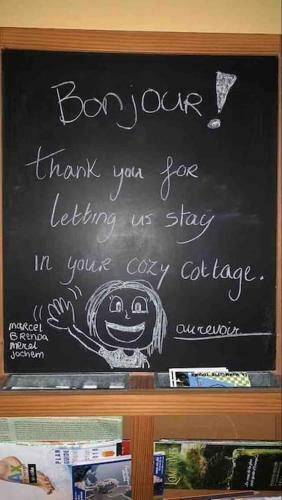 Bonjour!
thank you for
letting us stay
in your cozy cottage.
au revoir
marcel
Brenda
merel
jochem
PLAN
GUIDE